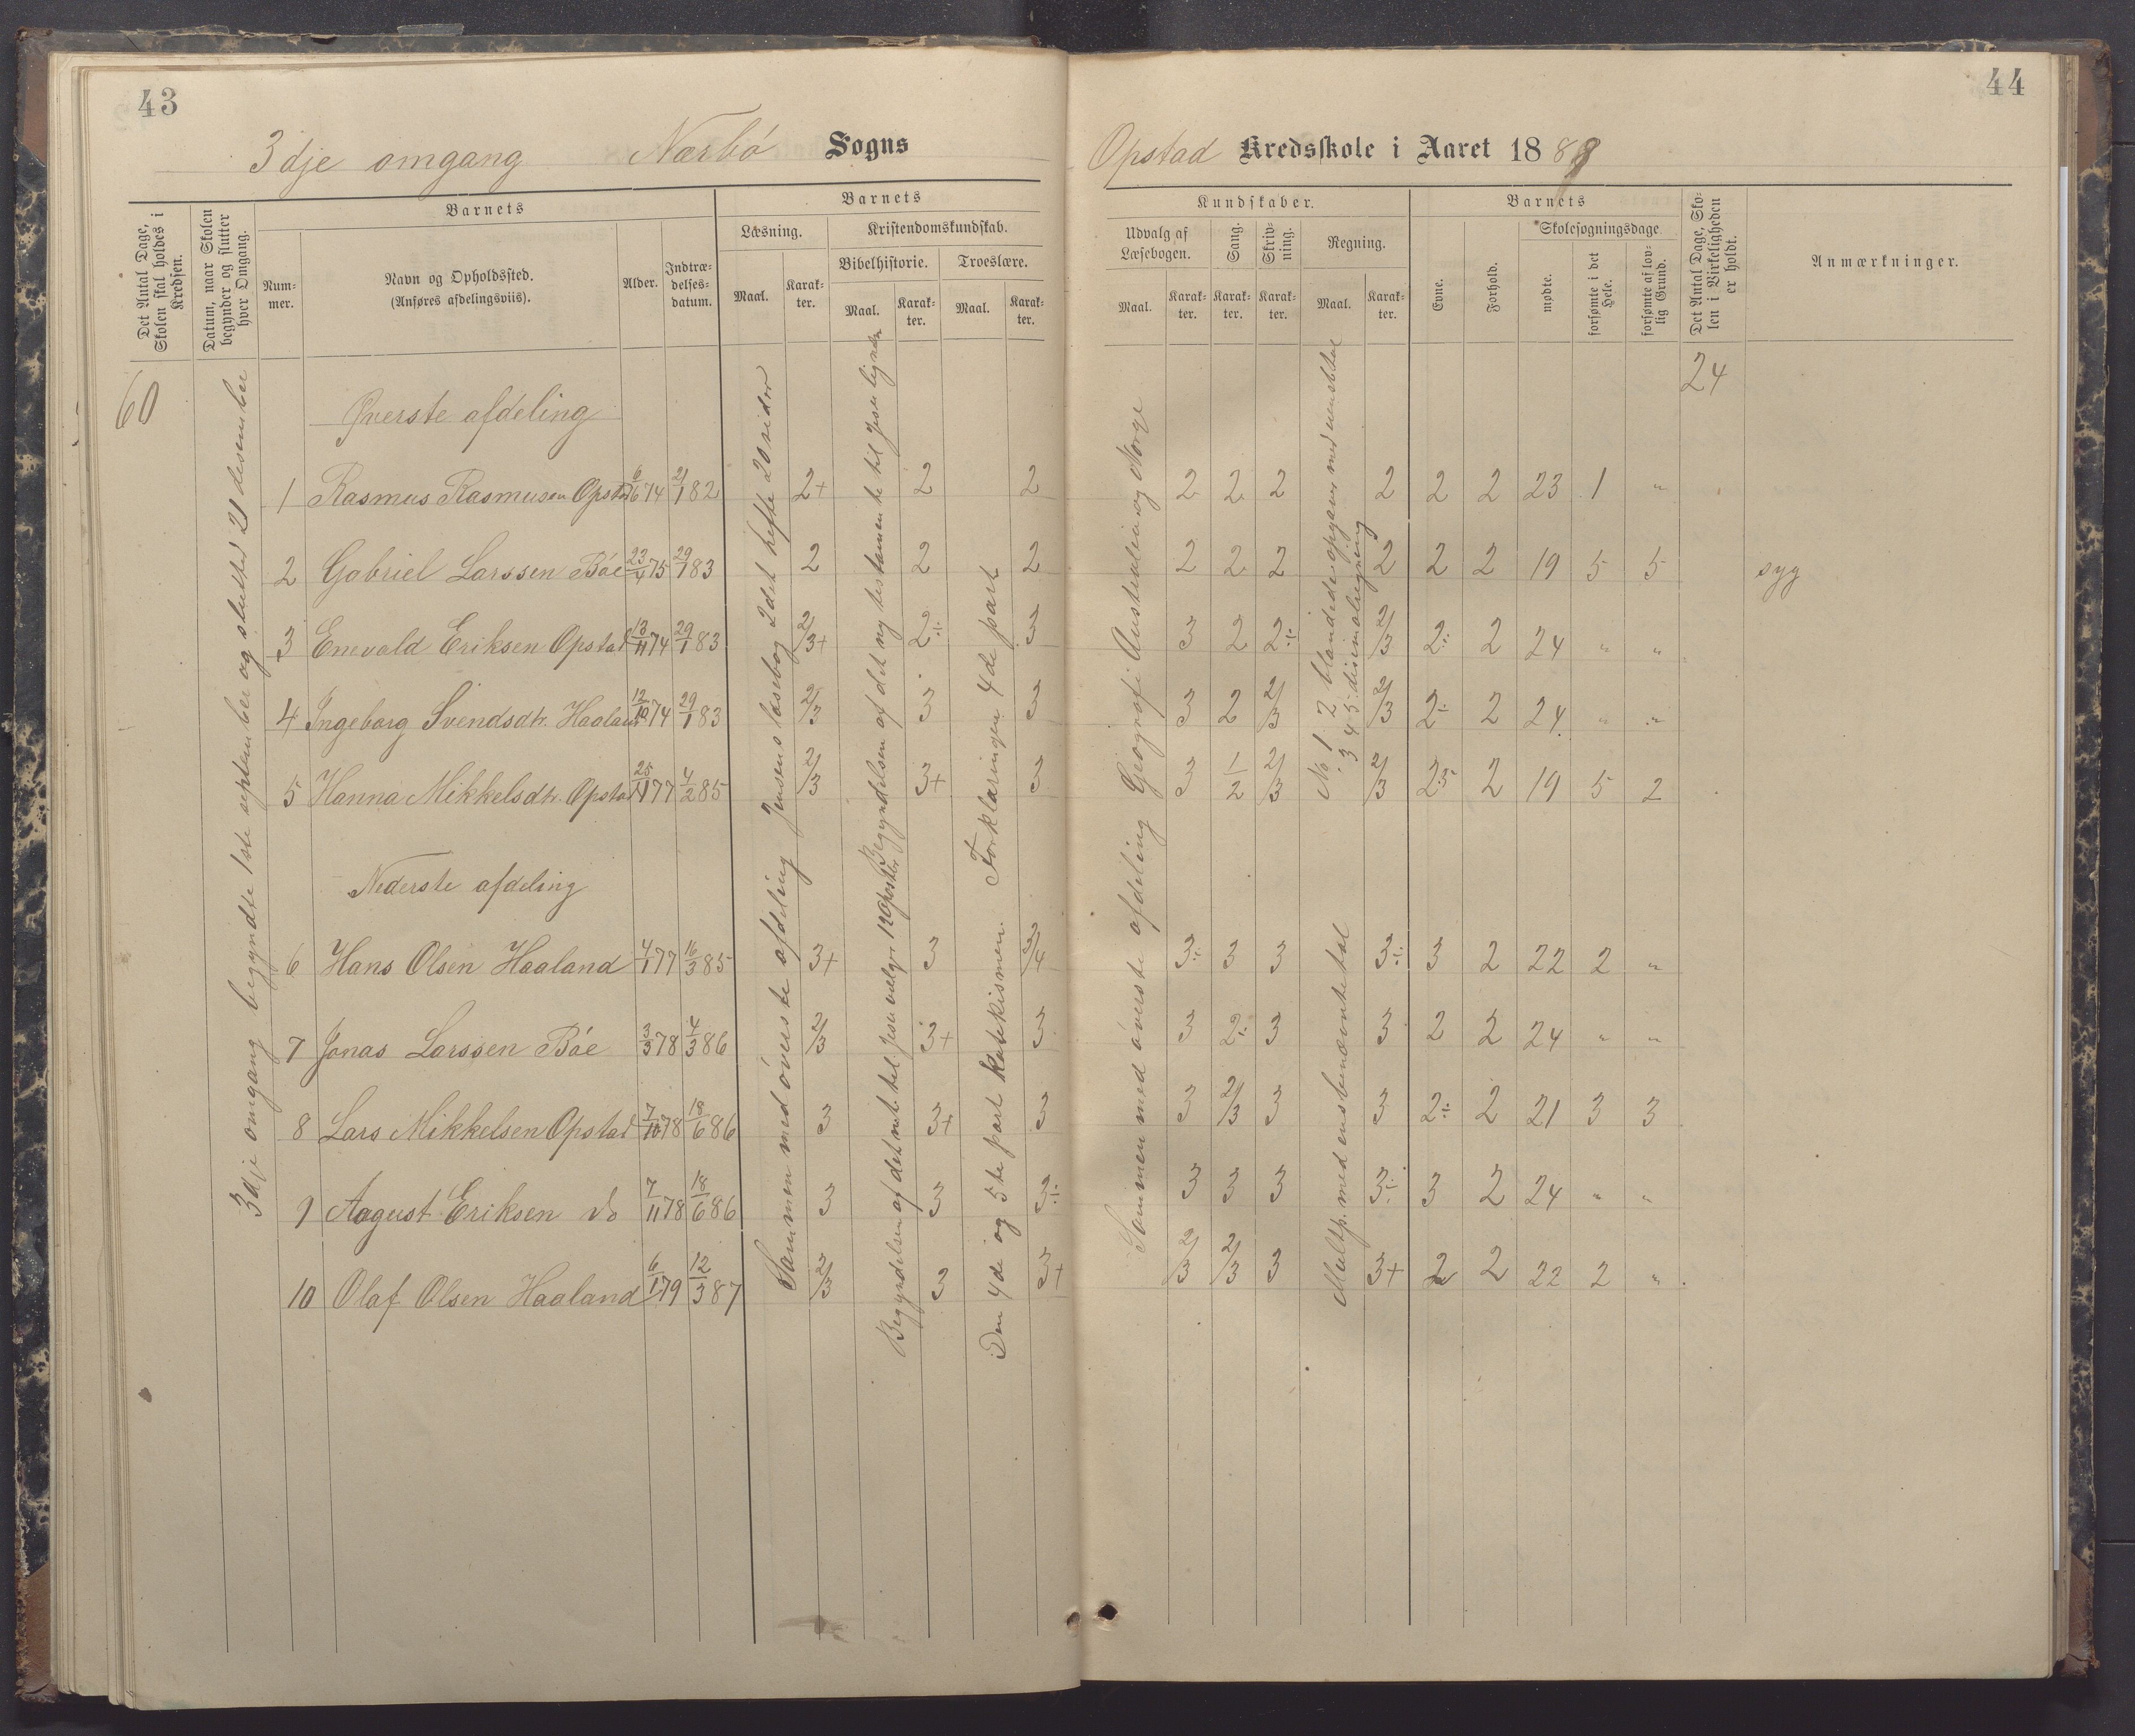 43
3dje omgang Nærbö Sogns
Det Antal Dage, Skolen skal holdes i Kredsen.
Datum, naar Skolen begynder og slutter hver Omgang.
Barnets
Nummer.
Navn og Opholdssted.
(Anføres afdelingsviis).
Alder.
Indtrædelsesdatum.
Barnets
Læsning.
Maal.
Karakter.
Kristendomskundskab.
Bibelhistorie.
Maal.
Karakter.
Troeslære.
Maal.
Karakter.
60
3dje omgang begyndte 1ste september og sluttet 21 desember
Øverste afdeling
1 Rasmus Rasmusen Opstad 6/6 74 2/1 82 2+ 2 2
2 Gabriel Larssen Böe 23/4 75 29/1 83 2 2 2
3 Enevald Eriksen Opstad 13/11 74 29/1 83 2/3+ 2÷ 3
4 Ingeborg Svendsdtr. Haaland 12/10 74 29/1 83 2/3 3 3
5 Hanna Mikkelsdtr. Opstad 25/1 77 4/2 85 2/3 3+ 3
Nederste afdeling
6 Hans Olsen Haaland 4/1 77 16/3 85 3+ 3 3/4
7 Jonas Larssen Böe 3/3 78 4/3 86 2/3 3+ 3
8 Lars Mikkelsen Opstad 7/10 78 18/6 86 3 3+ 3
9 August Eriksen do 7/11 78 18/6 86 3 3 3÷
10 Olaf Olsen Haaland 6/1 79 12/3 87 2/3 3 3+
Jensens læsebog 2det hefte 20 sider
Sammen med överste afdeling
Begyndelsen af det ny testamente til Jesu lignelser
Begyndelsen af det nt. til Jesu vælger 12 apostler
Forklaringen 4de part
Den 4de og 5te part katekismen.
44
Opstad Kredsskole i Aaret 1888
Kundskaber.
Udvalg af Læsebogen.
Maal.
Karakter.
Sang.
Karakter.
Skrivning.
Karakter.
Regning.
Maal.
Karakter.
Barnets
Evne.
Forhold.
Skolesøgningsdage
mødte.
forsømte i det Hele.
forsømte af lovlig Grund.
Det Antal Dage, Skolen i Virkeligheden er holdt.
Anmærkninger.
24
2 2 2 2 2 2 23 1 "
2 2 2 2 2 2 19 5 5 syg
3 2 2÷ 2/3 2÷ 2 24 " "
3 2 2/3 2/3 2÷ 2 24 " "
3 1/2 2/3 2/3 2 19 5 2
3÷ 3 3 3÷ 3 2 22 2 "
3 2÷ 3 3 2 2 24 " "
3 2/3 3 3 2÷ 2 21 3 3
3 3 3 3÷ 3 2 24 " "
2/3 2/3 3 3+ 2 2 22 2 "
Geografi Australien og Norge
Sammen med överste afdeling
No 1 2 blandede opgaver med uensbtal
3 4 5 disimalregning
Multp. med ensbenævnte tal